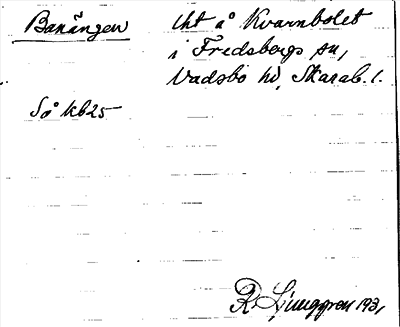 Banängen
tht å Kvarnbolet
i Fredsbergs sn,
Vadsbo hd, Skarab. l.
Så kb25
R Ljunggren 1931